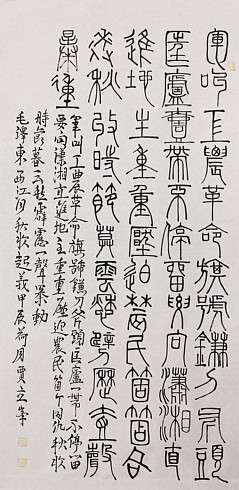 軍叫工農革命旗號鎌刀斧頭
匡廬壹帶不停留要向瀟湘直
進地主重重壓迫農民箇箇同
仇秋收時節莫雲愁霹靂壹聲
暴動
軍叫工農革命旗號鎌刀斧頭匡廬一帶不停留
要向瀟湘直進地主重重壓迫農民箇箇同仇秋收
時節暮雲愁霹靂一聲暴動
毛澤東西江月秋收起義甲辰荷月賈立峯